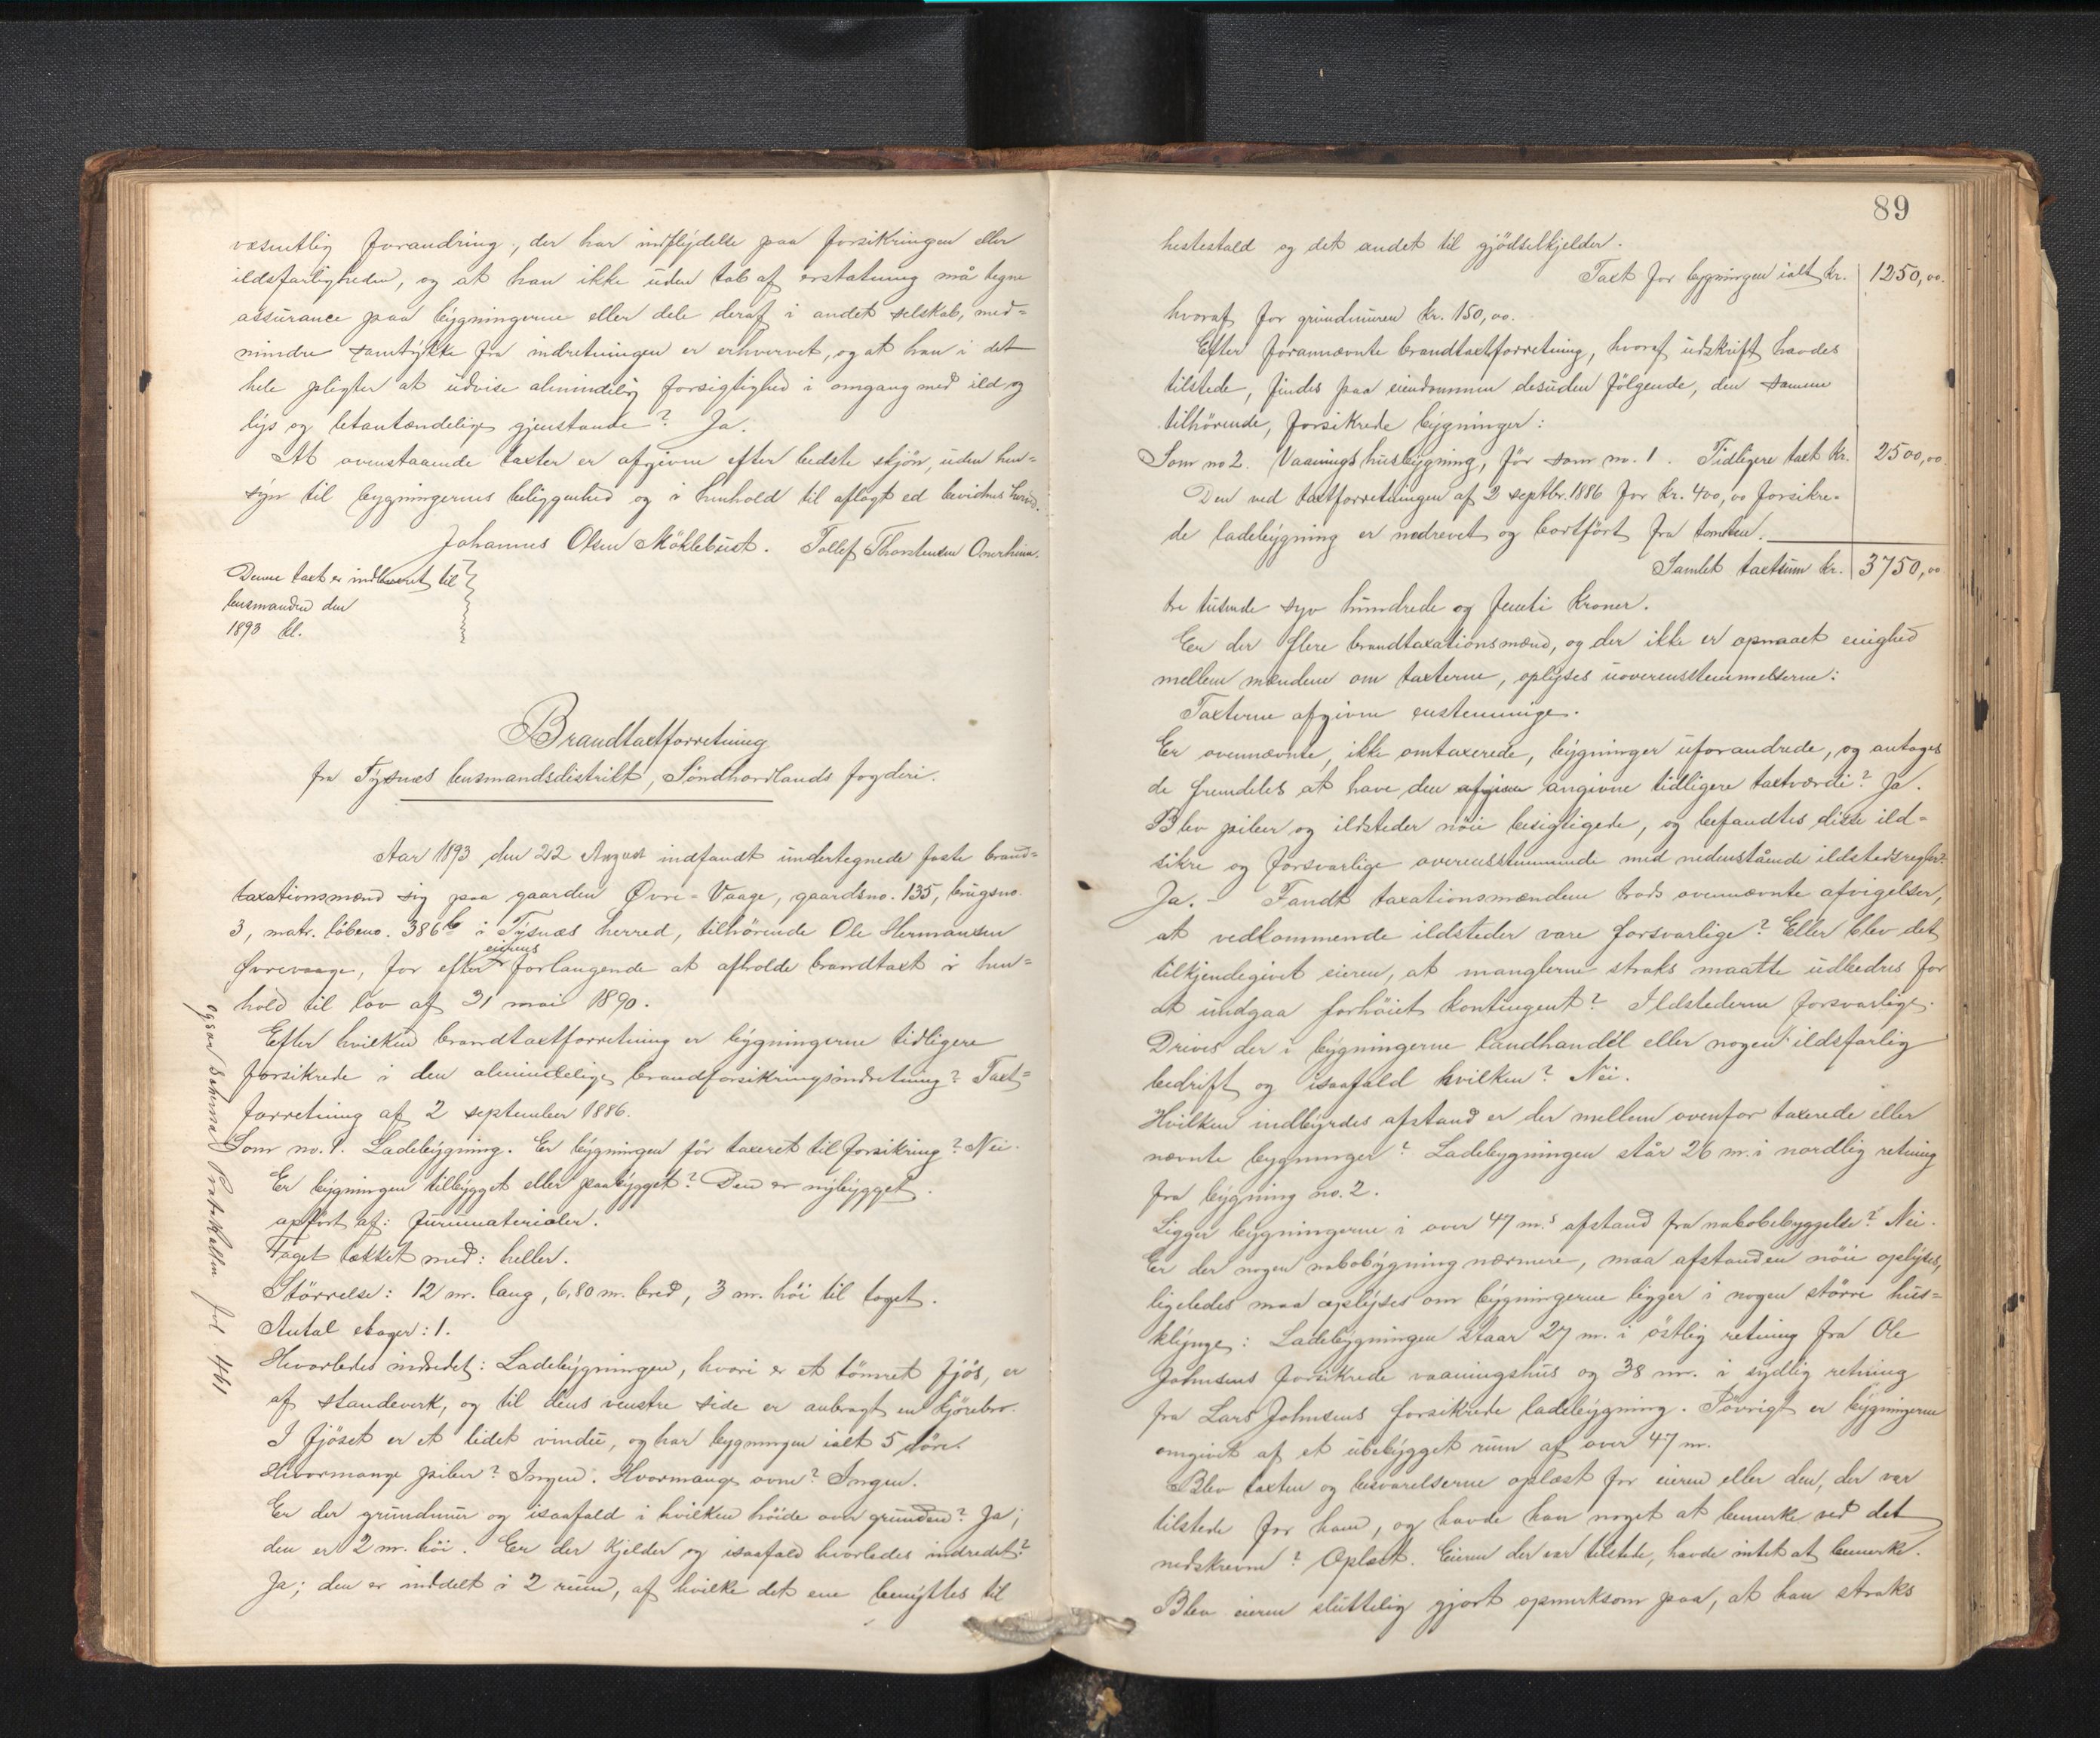 væsentlig forandring, der har indflydelse paa forsikringen eller
ildsfarligheden, og at han ikke uden tab af erstatning må tegne
assurance paa bygningerne eller dele deraf i andet selskab, med=
mindre samtykke fra indretningen er erhvervet, og at han i det
hele pligter at udvise almindelig forsigtighed i omgang med ild og
lys og letantændelige gjenstande? Ja.
At ovenstaaende taxter er afgivne efter bedste skjön, uden hen=
syn til bygningernes beliggenhed og i henhold til aflagt ed bevidnes herved.
Johannes Olsen Möklebust. Tollef Thorstensen Onerheim.
Denne taxt er indleveret til
lensmanden den
1893 kl.
Brandtaxtforretning
fra Tysnæs lensmandsdistrikt, Söndhordlands fogderi.
Aar 1893 den 22 August indfandt undertegnede faste brand=
taxationsmænd sig paa gaarden Övre-Vaage, gaardsno. 135, brugsno.
3, matr. löbeno. 386b i Tysnæs herred, tilhörende Ole Hermansen
Øvrevaage, for efter eierens forlangende at afholde brandtaxt i hen=
hold til lov af 31 mai 1890.
Efter hvilken brandtaxtforretning er bygningerne tidligere
forsikrede i den almindelige brandforsikringsindretning? Taxt=
forretning af 2 september 1886.
Som no. 1. Ladebygning. Er bygningen för taxeret til forsikring? Nei.
Er bygningen tilbygget eller paabygget? Den er nybygget.
opfört af: furumaterialer.
Taget tækket med: heller.
Störrelse: 12 m. lang, 6,80 m. bred, 3 m. höi til taget.
Antal etager: 1.
Hvorledes indredet: Ladebygningen, hvori er et tömret fjös, er
af standeverk, og til dens venstre side er anbragt en kjörebro.
I fjöset er et lidet vindu, og har bygningen ialt 5 döre.
Hvormange piber? Ingen. Hvormange ovne? Ingen.
Er der grundmur og isaafald i hvilken höide over grunden? Ja;
den er 2 m. höi. Er der kjelder og isaafald hvorledes indredet?
Ja; den er inddelt i 2 rum, af hvilke det ene benyttes til
ogsaa Schema Protokollen fol 461
89
hestestald og det andet til gjödselkjelder.
Taxt for bygningen ialt kr. 1250,00.
hvoraf for grundmuren kr. 150,00.
Efter forannævnte brandtaxtforretning, hvoraf udskrift havdes
tilstede, findes paa eiendommen desuden fölgende, den samme
tilhörende, forsikrede bygninger:
Som no 2. Vaaningshusbygning, för som no. 1. Tidligere taxt kr. 2500,00
Den ved taxtforretningen af 2 septbr. 1886 for kr. 400,00 forsikre=
de ladebygning er nedrevet og bortfört fra tomten.
Samlet taxtsum kr. 3750,00
tre tusende syv hundrede og femti kroner.
Er der flere brandtaxationsmænd, og der ikke er opnaaet enighed
mellem mændene om taxterne, oplyses uoverensstemmelserne:
Taxterne afgivne enstemmige.
Er ovennævnte, ikke omtaxerede, bygninger uforandrede, og antages
de fremdeles at have den afgivne angivne tidligere taxtværdi? Ja.
Blev piber og ildsteder nöie besigtigede, og befandtes disse ild=
sikre og forsvarlige overensstemmende med nedenstående ildstedsregler?
Ja. - Fandt taxationsmændene trods ovennævnte afvigelser,
at vedkommende ildsteder vare forsvarlige? Eller blev det
tilkjendegivet eieren, at manglerne straks maatte udbedres for
at undgaa forhöiet kontingent? Ildstederne forsvarlige.
Drives der i bygningerne landhandel eller nogen ildsfarlig
bedrift og isaafald hvilken? Nei.
Hvilken indbyrdes afstand er der mellem ovenfor taxerede eller
nævnte bygninger? Ladebygningen står 26 m. i nordlig retning
fra bygning no. 2.
Ligger bygningerne i over 47 m.s afstand fra nabobebyggelse? Nei.
Er der nogen nabobygning nærmere, maa afstanden nöie oplyses,
ligeledes maa oplyses om bygningerne ligger i nogen större hus=
klynge: Ladebygningen staar 27 m. i östlig retning fra Ole
Johnsens forsikrede vaaningshus og 38 m. i sydlig retning
fra Lars Johnsens forsikrede ladebygning. Iövrigt er bygningerne
omgivet af et ubebygget rum af over 47 m.
Blev taxten og besvarelserne oplæst for eieren eller den, der var
tilstede for ham, og havde han noget at bemerke ved det
nedskrevne? Oplæst. Eieren der var tilstede, havde intet at bemerke.
Blev eieren sluttelig gjort opmerksom paa, at han straks